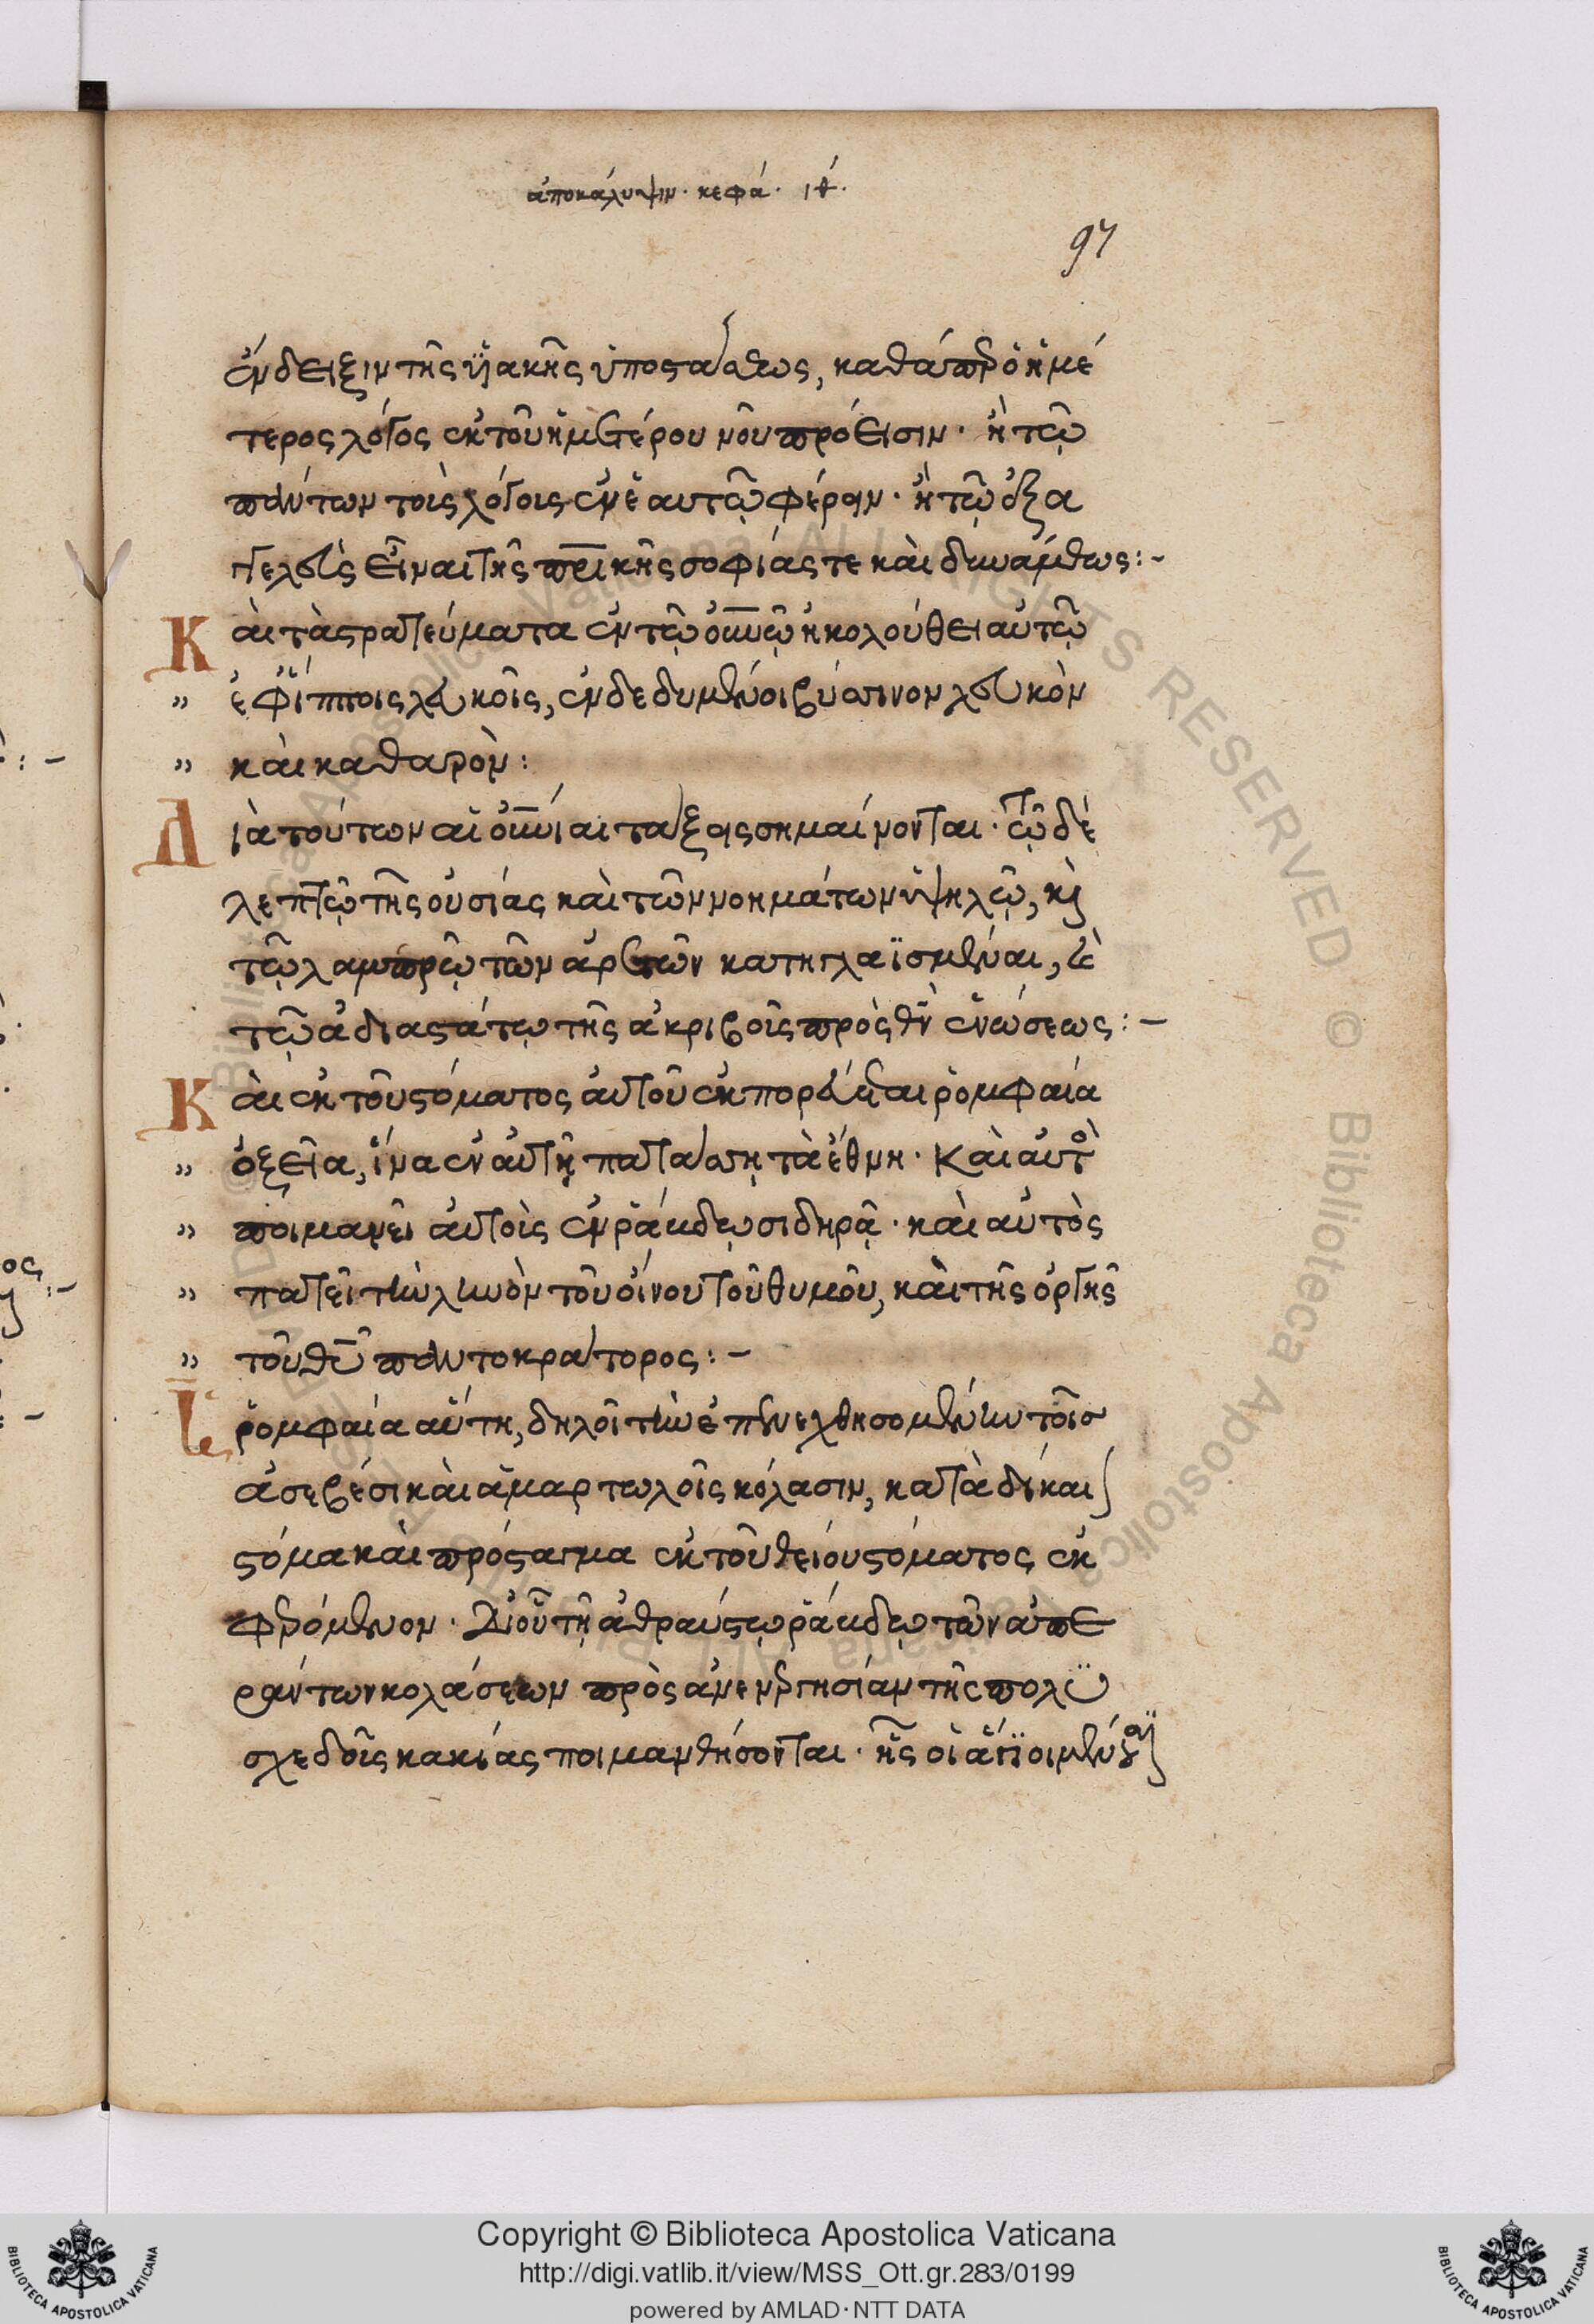 ἀποκάλυψιν. κεφά. ιθ.
97
ἔνδειξιν τῆς υἱακῆς ὑποστάσεως, καθάπερ ὁ ἡμέ
τερος λόγος ἐκ τοῦ ἡμετέρου νοῦ πρόεισιν. ἢ τῷ
πάντων τοὺς λόγους ἐν ἑαυτῷ φέρειν. ἢ τῷ ἐξα
γγελεὺς εἶναι τῆς πρικῆς σοφίας τε καὶ δυνάμεως:-
Καὶ τὰ στρατεύματα ἐν τῷ οὐνῷ ἠκολούθει αὐτῷ
" ἐφ' ἵπποις λευκοῖς, ἐνδεδυμένοι βύσσινον λευκὸν
" καὶ καθαρὸν:
Διὰ τούτων αἱ οὐνίαι τάξεις σημαίνονται. τῷ δὲ
λεπτῷ τῆς οὐσίας καὶ τῶν νοημάτων ὑψηλῷ, καὶ
τῷ λαμπρῷ τῶν ἀρετῶν κατηγλαϊσμέναι, καὶ
τῷ ἀδιαστάτῳ τῆς ἀκριβοῦς πρὸς θν ἑνώσεως:-
Καὶ ἐκ τοῦ στόματος αὐτοῦ ἐκπορεύεται ῥομφαία
" ὀξεῖα, ἵνα ἐν αὐτῇ πατάσσῃ τὰ ἔθνη. Καὶ αὐτὸ
" ποιμανεῖ αὐτοὺς ἐν ῥάβδῳ σιδηρᾷ. καὶ αὐτὸς
" πατεῖ τὴν ληνὸν τοῦ οἴνου τοῦ θυμοῦ, καὶ τῆς ὀργῆς
" τοῦ θυ παντοκράτορος:-
ῥομφαία αὕτη, δηλοῖ τὴν ἐπενεχθησομένην τοῖσ
ἀσεβέσι καὶ ἁμαρτωλοῖς κόλασιν, κατὰ δίκαι
στόμα καὶ πρόσταγμα ἐκ τοῦ θείου στόματος ἐκ
φερόμενον. Δι' οὗ τῇ ἀθραύστῳ ῥάβδῳ τῶν ἀπε
ράντων κολάσεων πρὸς ἀνενεργησίαν τῆς πολυ
σχεδοῦς κακίας ποιμανθήσονται. ἧς οἱ ἅγιοι
Copyright © Biblioteca Apostolica Vaticana
http://digi.vatlib.it/view/MSS_Ott.gr.283/0199
powered by AMLAD·NTT DATA